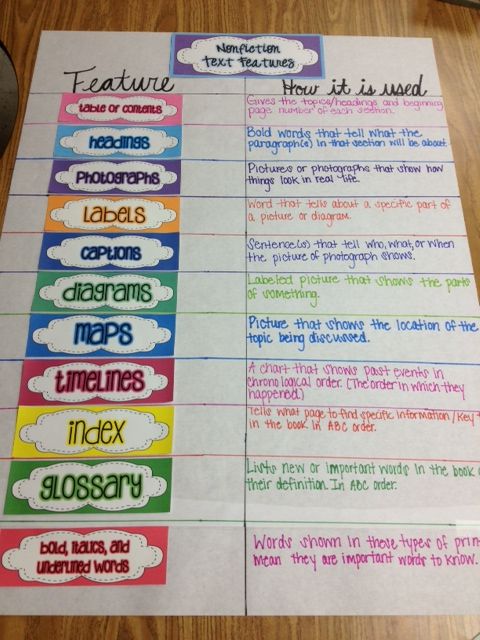 Nonfiction
Text Features
Feature
How it is used
table of contents
Gives the topics/headings and beginning
page number of each section.
headings
Bold words that tell what the
paragraph(s) in that section will be about.
Photographs
Pictures or photographs that show how
things look in real life.
Labels
Word that tells about a specific part of
a picture or diagram.
captions
Sentence(s) that tell who, what, or when
the picture of photograph shows.
diagrams
Labeled picture that shows the parts
of something.
maps
Picture that shows the location of the
topic being discussed.
timelines
A chart that shows past events in
chronological order. (The order in which they
happened.)
index
Tells what page to find specific information/key
in the book in ABC order.
glossary
Lists new or important words in the book
their definition. In ABC order.
bold, italics, and
underlined words
Words shown in these types of prin
mean they are important words to know.